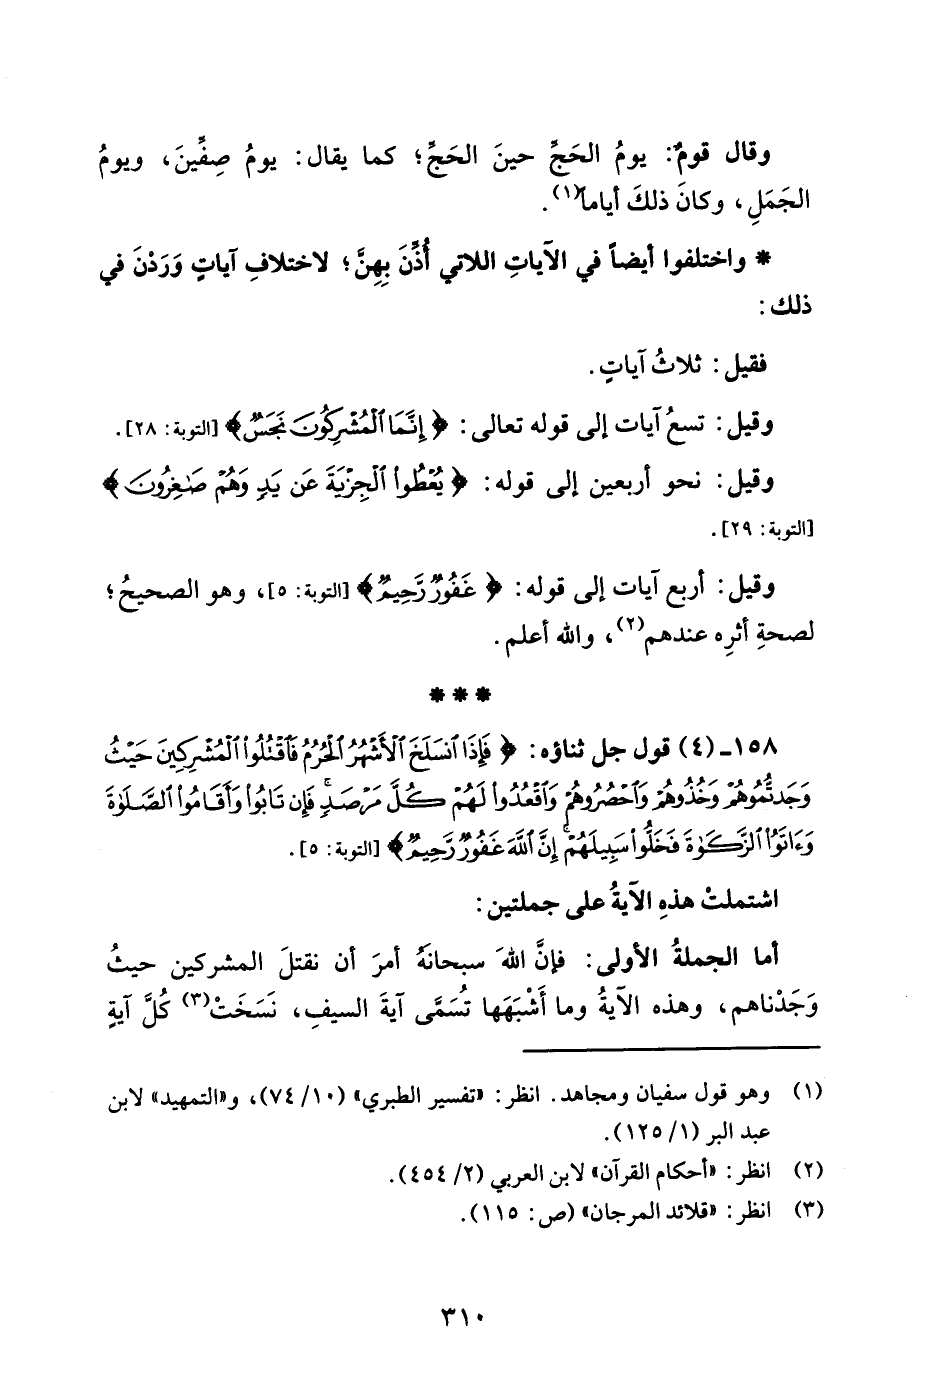 وقال قومٌ: يومُ الحَجِّ حينَ الحَجِّ؛ كما يقال: يومُ صِفِّينَ، ويومُ
الجَمَلِ، وكانَ ذلكَ أياماً(١).
* واختلفوا أيضاً في الآياتِ اللاتي أُذِّنَ بِهِنَّ؛ لاختلافِ آياتٍ وَرَدْنَ في
ذلك:
فقيل: ثلاثُ آياتٍ.
وقيل: تسعُ آيات إلى قوله تعالى: ﴿إِنَّمَا ٱلْمُشْرِكُونَ نَجَسٌ﴾ [التوبة: ٢٨].
وقيل: نحو أربعين إلى قوله: ﴿يُعْطُواْ ٱلْجِزْيَةَ عَن يَدٍ وَهُمْ صَٰغِرُونَ﴾
[التوبة: ٢٩].
وقيل: أربع آيات إلى قوله: ﴿غَفُورٌ رَّحِيمٌ﴾ [التوبة: ٥]، وهو الصحيحُ؛
لصحةِ أثرِه عندهم(٢)، والله أعلم.
* * *
١٥٨ـ (٤) قول جل ثناؤه: ﴿فَإِذَا ٱنسَلَخَ ٱلْأَشْهُرُ ٱلْحُرُمُ فَٱقْتُلُواْ ٱلْمُشْرِكِينَ حَيْثُ
وَجَدتُّمُوهُمْ وَخُذُوهُمْ وَٱحْصُرُوهُمْ وَٱقْعُدُواْ لَهُمْ كُلَّ مَرْصَدٍۚ فَإِن تَابُواْ وَأَقَامُواْ ٱلصَّلَوٰةَ
وَءَاتَوُاْ ٱلزَّكَوٰةَ فَخَلُّواْ سَبِيلَهُمْۚ إِنَّ ٱللَّهَ غَفُورٌ رَّحِيمٌ﴾ [التوبة: ٥].
اشتملتْ هذهِ الآيةُ على جملتين:
أما الجملةُ الأولى: فإنَّ اللهَ سبحانَهُ أمرَ أن نقتلَ المشركين حيثُ
وَجَدْناهم، وهذه الآيةُ وما أَشْبَهَها تُسَمَّى آيةَ السيفِ، نَسَخَتْ(٣) كُلَّ آيةٍ
(١) وهو قول سفيان ومجاهد. انظر: «تفسير الطبري» (١٠/ ٧٤)، و«التمهيد» لابن
عبد البر (١/ ١٢٥).
(٢) انظر: «أحكام القرآن» لابن العربي (٢/ ٤٥٤).
(٣) انظر: «قلائد المرجان» (ص: ١١٥).
٣١٠